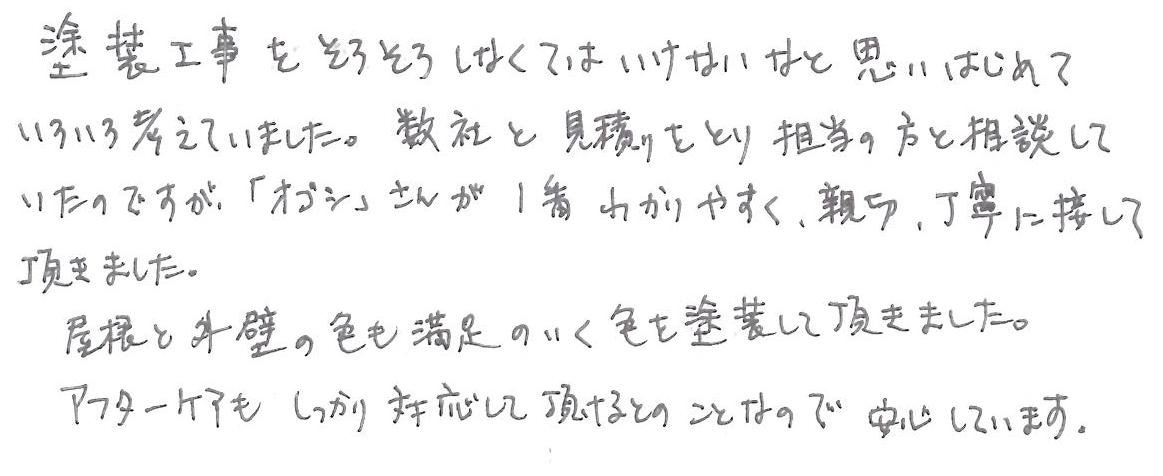 塗装工事をそろそろしなくてはいけないなと思いはじめて
いろいろ考えていました。数社と見積りをとり担当の方と相談して
いたのですが、「オブシ」さんが1番わかりやすく、親切、丁寧に接して
頂きました。
屋根と外壁の色も満足のいく色を塗装して頂きました。
アフターケアもしっかり対応して頂けるとのことなので安心しています。